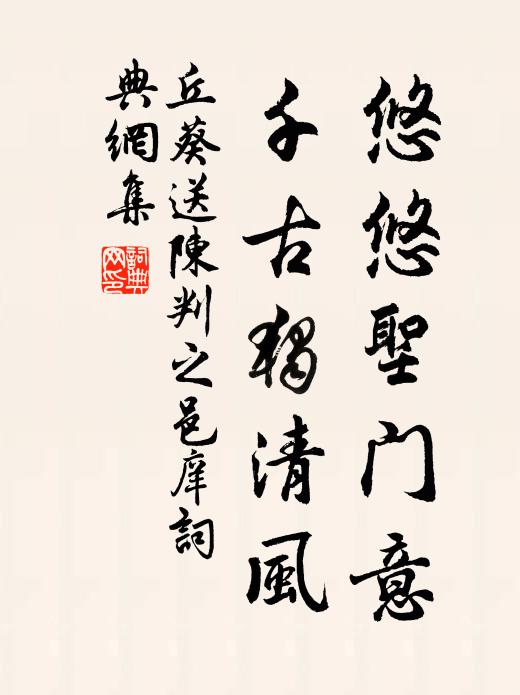 悠悠聖門意
千古獨清風
丘葵送陳判之邑庠詞
典網集
詞典
网印